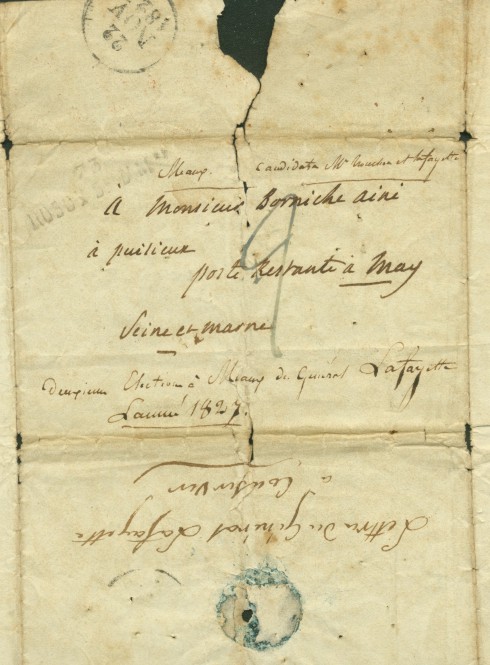 22
NOV
182
Meaux. Candidats Mr et Lafayette
A Monsieur Borniche ainé
à puisieux
poste Restante à May
Seine et marne
Deuxieme Election à Meaux du Général Lafayette
L'année 1827.
Lettre du Général Lafayette
à Conserver